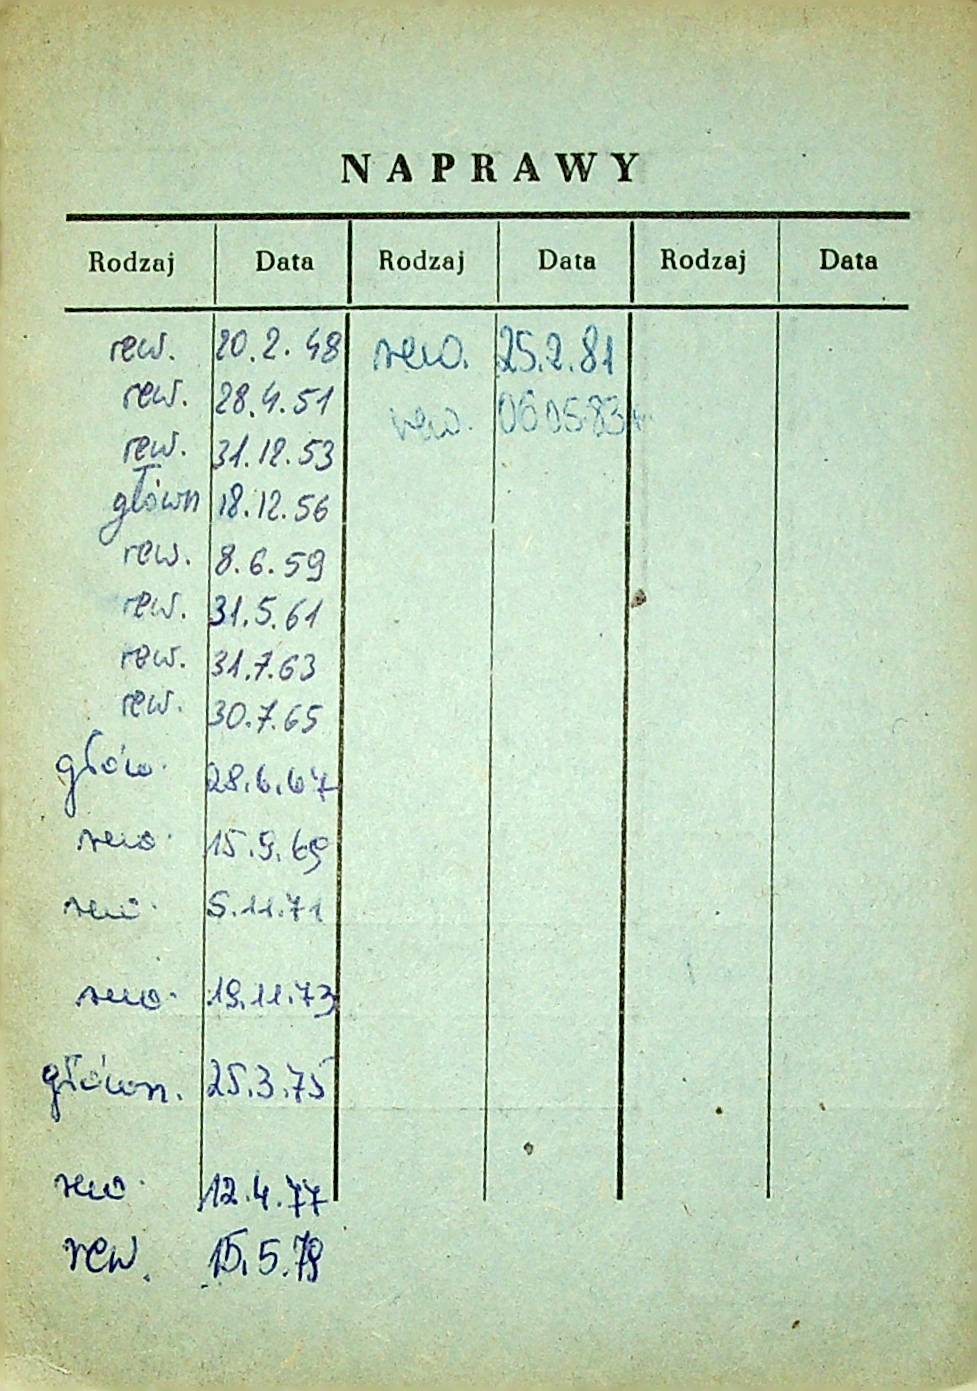 NAPRAWY
Rodzaj Data Rodzaj Data Rodzaj Data
rew. 20.2.48 rew. 25.2.81
rew. 28.4.51 rew. 06 05 83
rew. 31.12.53
główn 18.12.56
rew. 8.6.59
rew. 31.5.61
rew. 31.7.63
rew. 30.7.65
główn. 28.6.67
rew. 15.9.69
rew. 5.11.71
rew. 19.11.73
główn. 25.3.75
rew. 12.4.77
rew. 15.5.79